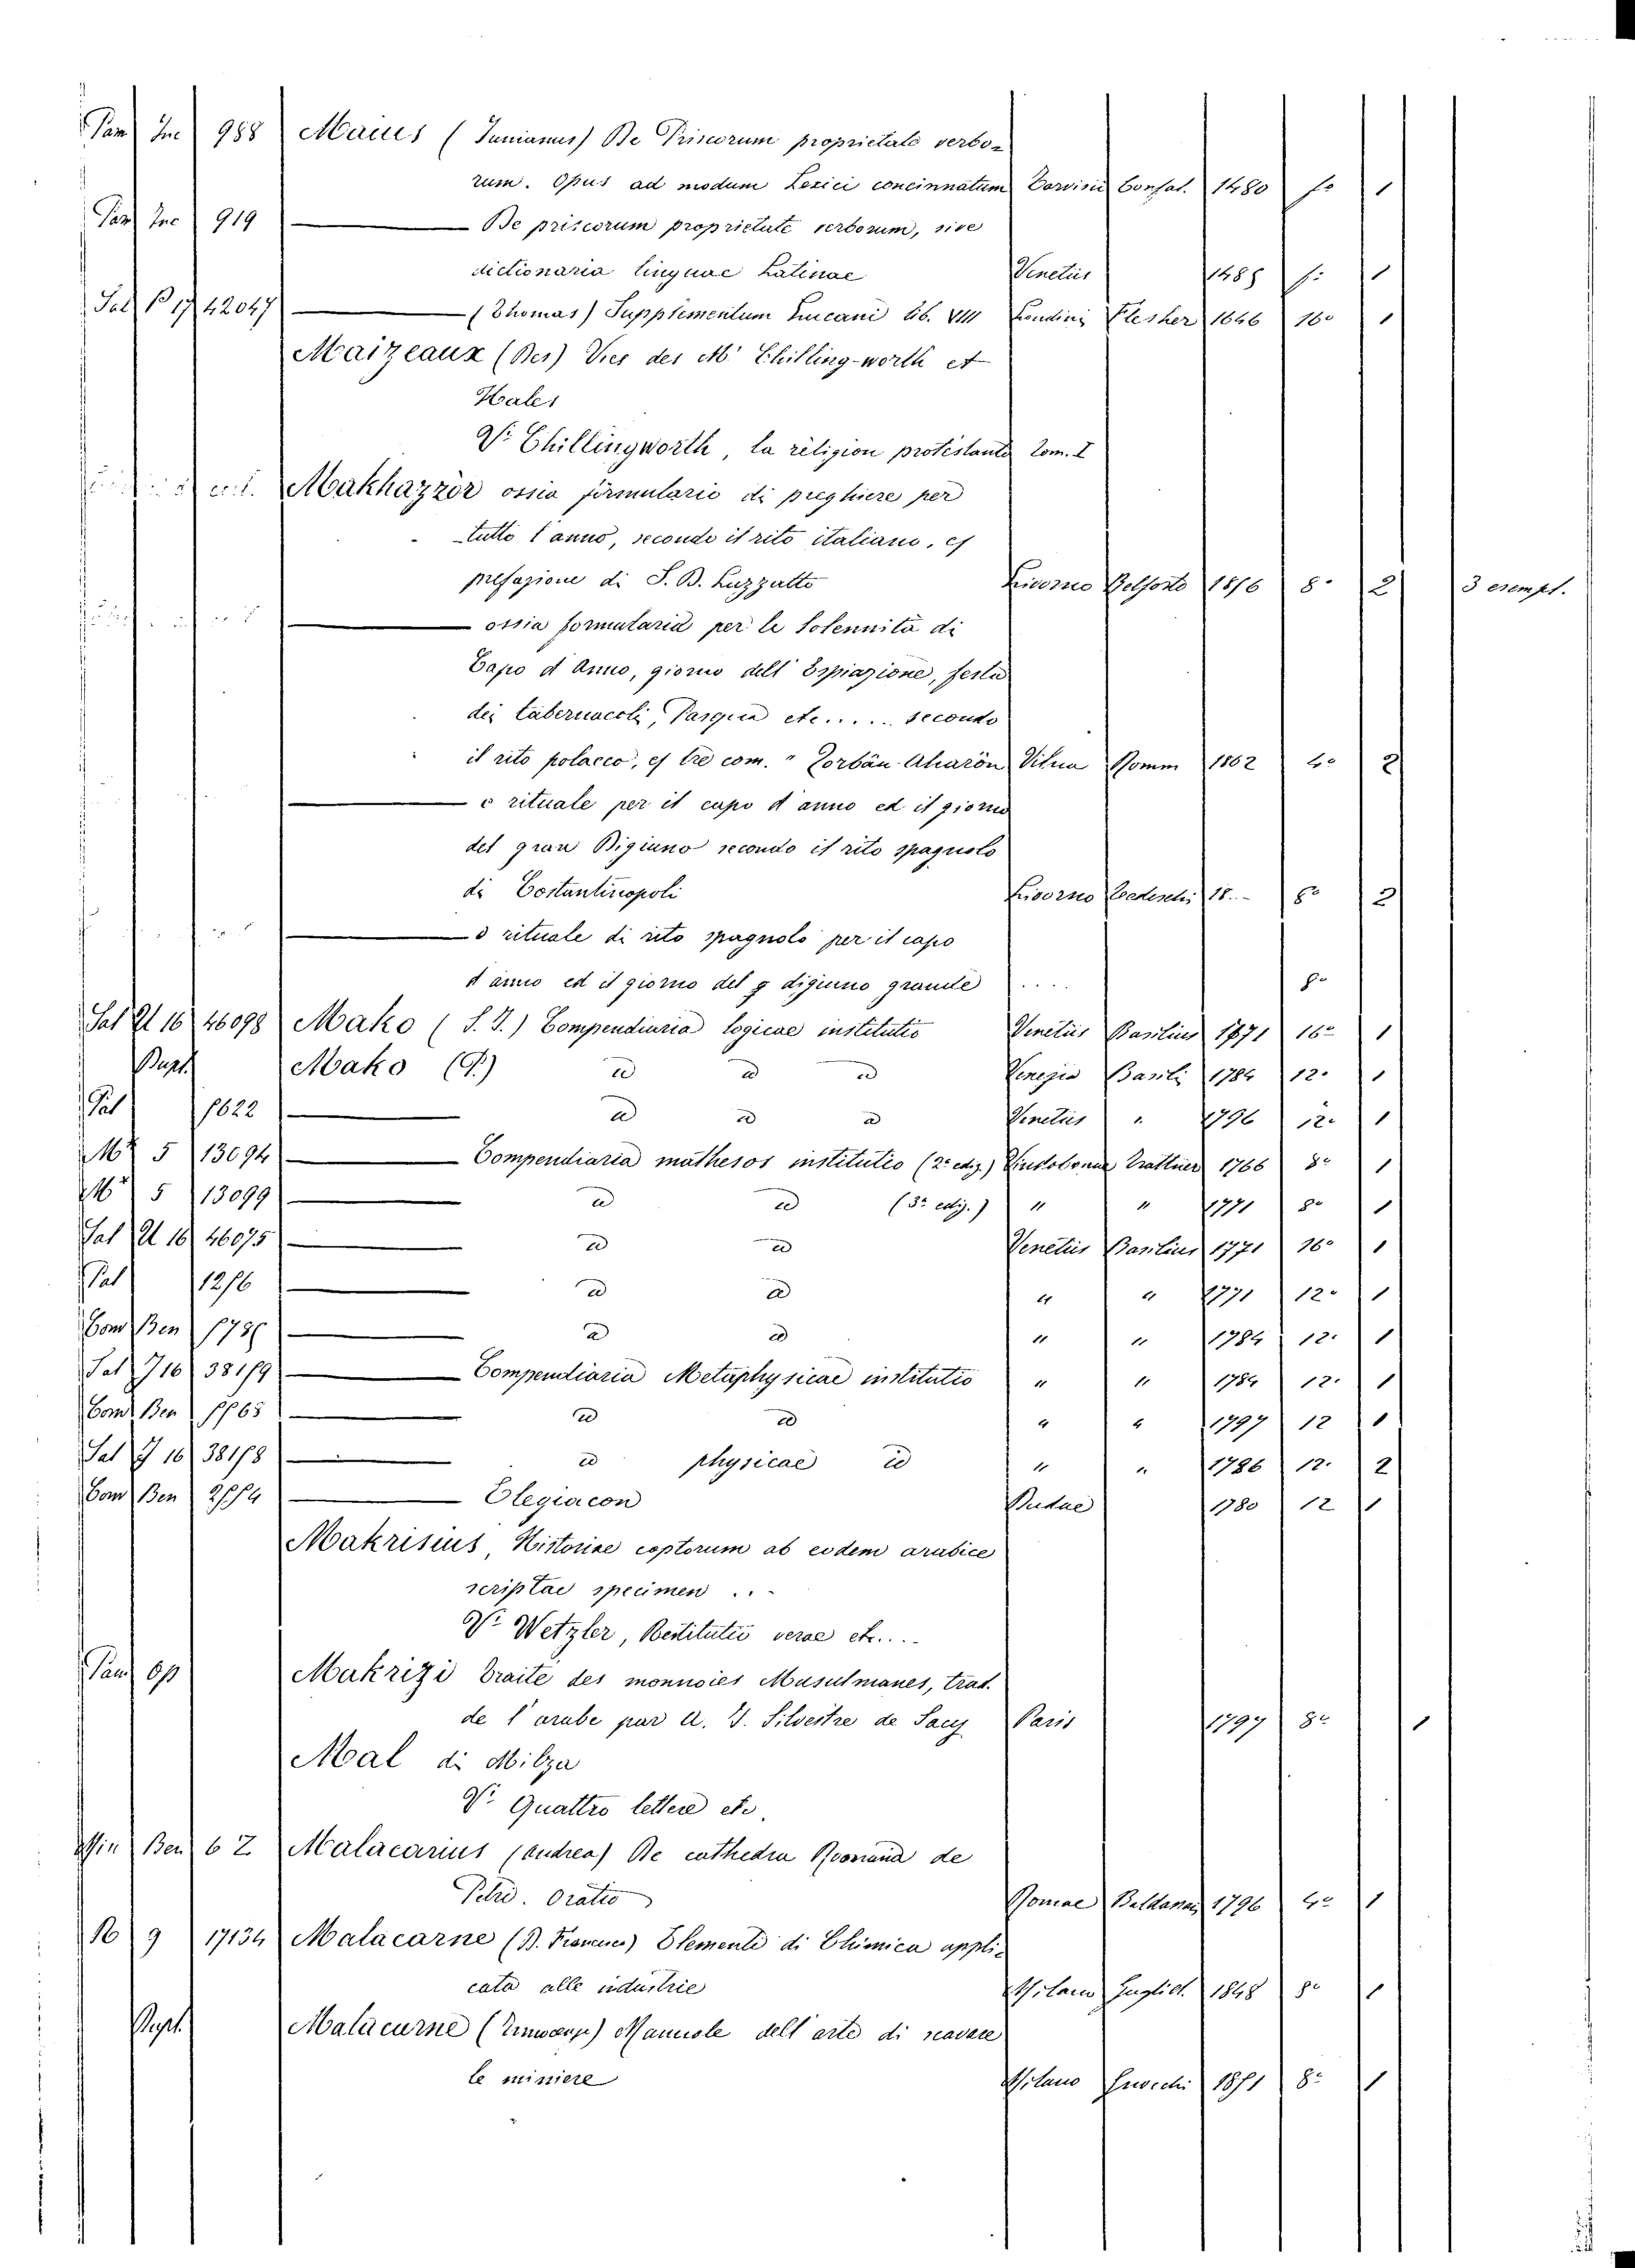 Pan Inc 988 Maius (Junianus) De Priscorum proprietate verbo-
rum. Opus ad modum Lexici concinnatum Tarvisii Confal. 1480 fo 1
Pan Inc 919 — De priscorum proprietate verborum, sive
dictionaria linguae Latinae Venetiis 1485 f: 1
Sal B 17 42047 — (Thomas) Supplementum Lucani lib. VIII Londini Flesher 1646 16o 1
Maizeaux (Des) Vies des M. Chilling-worth et
Hales
V. Chillingworth, la religion protestante Tom. I
Makhazzòr ossia formulario di preghiere per
tutto l'anno, secondo il rito italiano, c
prefazione di S. D. Luzzatto Livorno Belforte 1856 8o 2 3 esempl.
— ossia formularia per le Solennità di
Capo d'Anno, giorno dell'Espiazione, festa
dei tabernacoli, Pasqua etc...... secondo
il rito polacco, c tre com. " Corbän-Aharön Vilna Romm 1862 4o 2
— o rituale per il capo d'anno ed il giorno
del gran Digiuno secondo il rito spagnolo
di Costantinopoli Livorno Tedeschi 18.. 8o 2
— o rituale di rito spagnolo per il capo
d'anno ed il giorno del g digiuno grande .... 8o
Sal U 16 46098 Mako (S. J.) Compendiaria logicae institutio Venetiis Basilius 1771 16o 1
Dupl. Mako (P.) id id id Venezia Basili 1784 12o 1
Pal 1622 — id id id Venetiis " 1796 12o 1
M 5 13094 — Compendiaria mathesos institutio (2a ediz.) Vindobonae Trattner 1766 8o 1
M 5 13099 — id id (3a ediz.) " " 1771 8o 1
Sal U 16 46075 — id id Venetiis Basilius 1771 16o 1
Pal 1256 — id id " " 1771 12o 1
Com Ben 1786 — id id " " 1784 12o 1
Sal J 16 38179 — Compendiaria Metaphysicae institutio " " 1784 12o 1
Com Ben — id id " " 1797 12 1
Sal J 16 38178 — id physicae id " " 1786 12o 2
Com Ben — Elegiacon Budae 1780 12 1
Makrisius, Historiae coptorum ab eodem arabice
scriptae specimen ...
V. Wetzler, Restitutio verae etc....
Pan Op Makrizi Traité des monnoies Musulmanes, trad.
de l'arabe par A. J. Silvestre de Sacy Paris 1797 8o 1
Mal di Milza
V. Quattro lettere etc.
Min Ben 6 Z Malacarius (Andrea) De cathedra Romana de
Petro. Oratio Romae 1796 4o 1
16 9 17134 Malacarne (B. Francesco) Elementi di Chimica appli-
cata alle industrie Milano Guglielm. 1848 8o 1
Dupl. Malacarne Manuale dell'arte di scavare
le miniere Milano 1871 8o 1